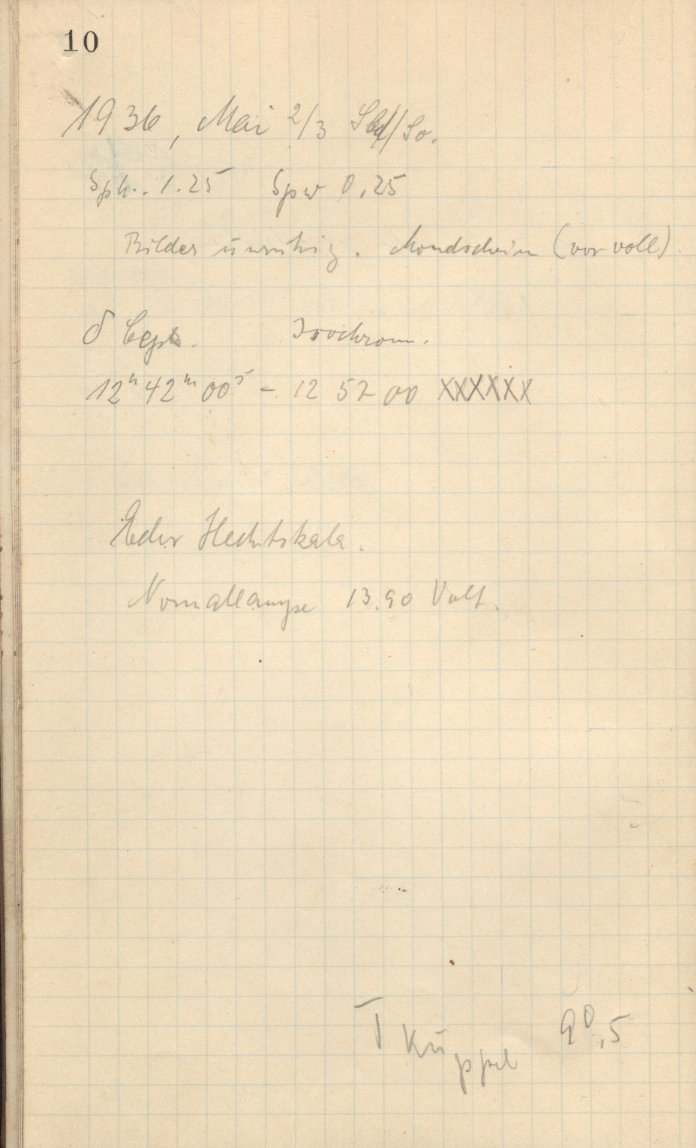 10
1936, Mai 2/3 Sbd/So.
Sph. 1.25 Spw 0,25
Bilder unruhig. Mondschein (vor voll)
δ Ceph. Isochrom.
12ʰ42ᵐ00ˢ – 12 57 00 XXXXXX
Eder Hechtskala.
Normallampe 13.90 Volt.
T Kuppel 9⁰,5